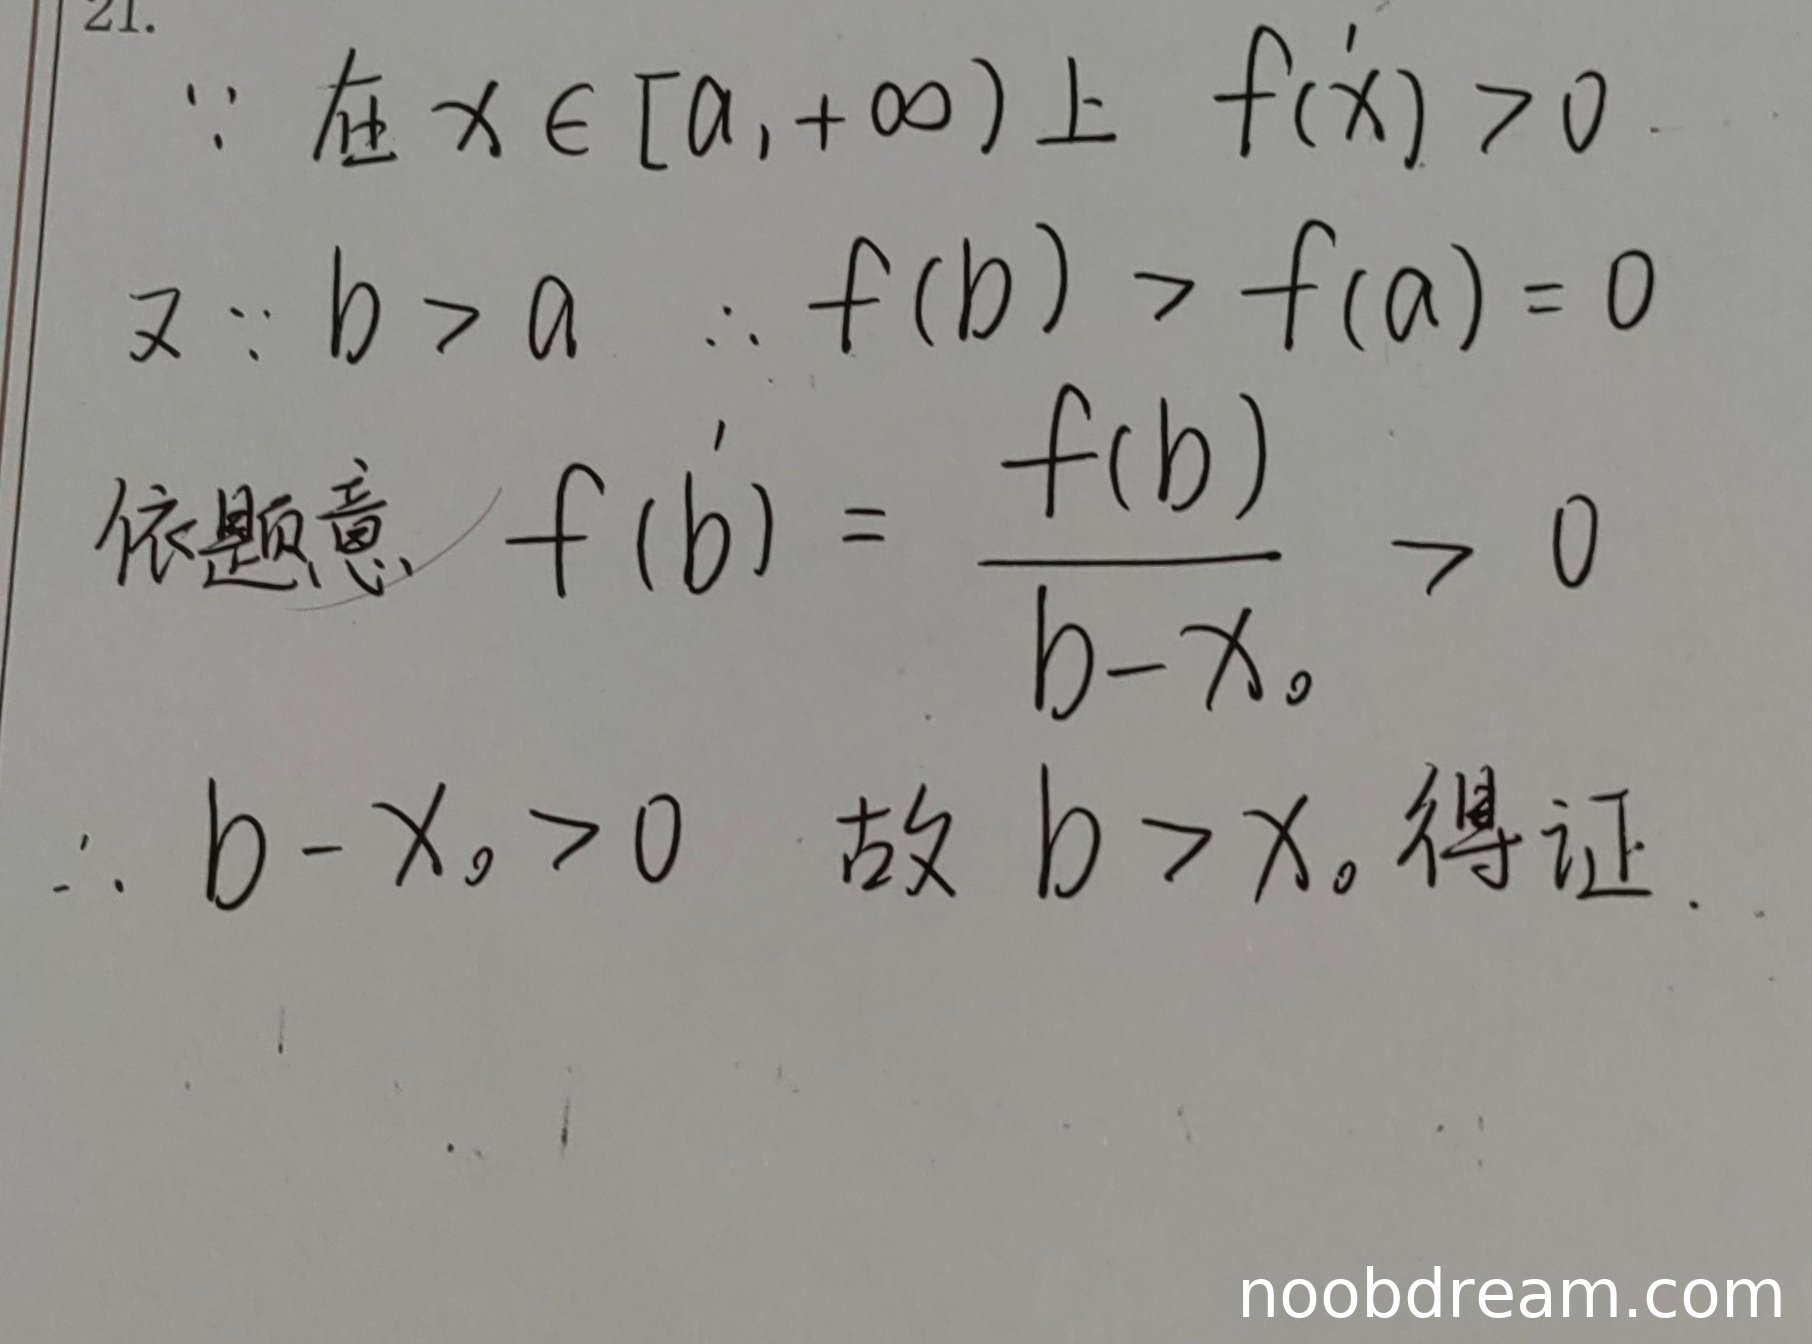 21.
∵ 在 x ∈ [a, +∞) 上 f'(x) > 0
又∵ b > a ∴ f(b) > f(a) = 0
依题意 f'(b) = f(b) / (b - x₀) > 0
∴ b - x₀ > 0 故 b > x₀ 得证.
noobdream.com